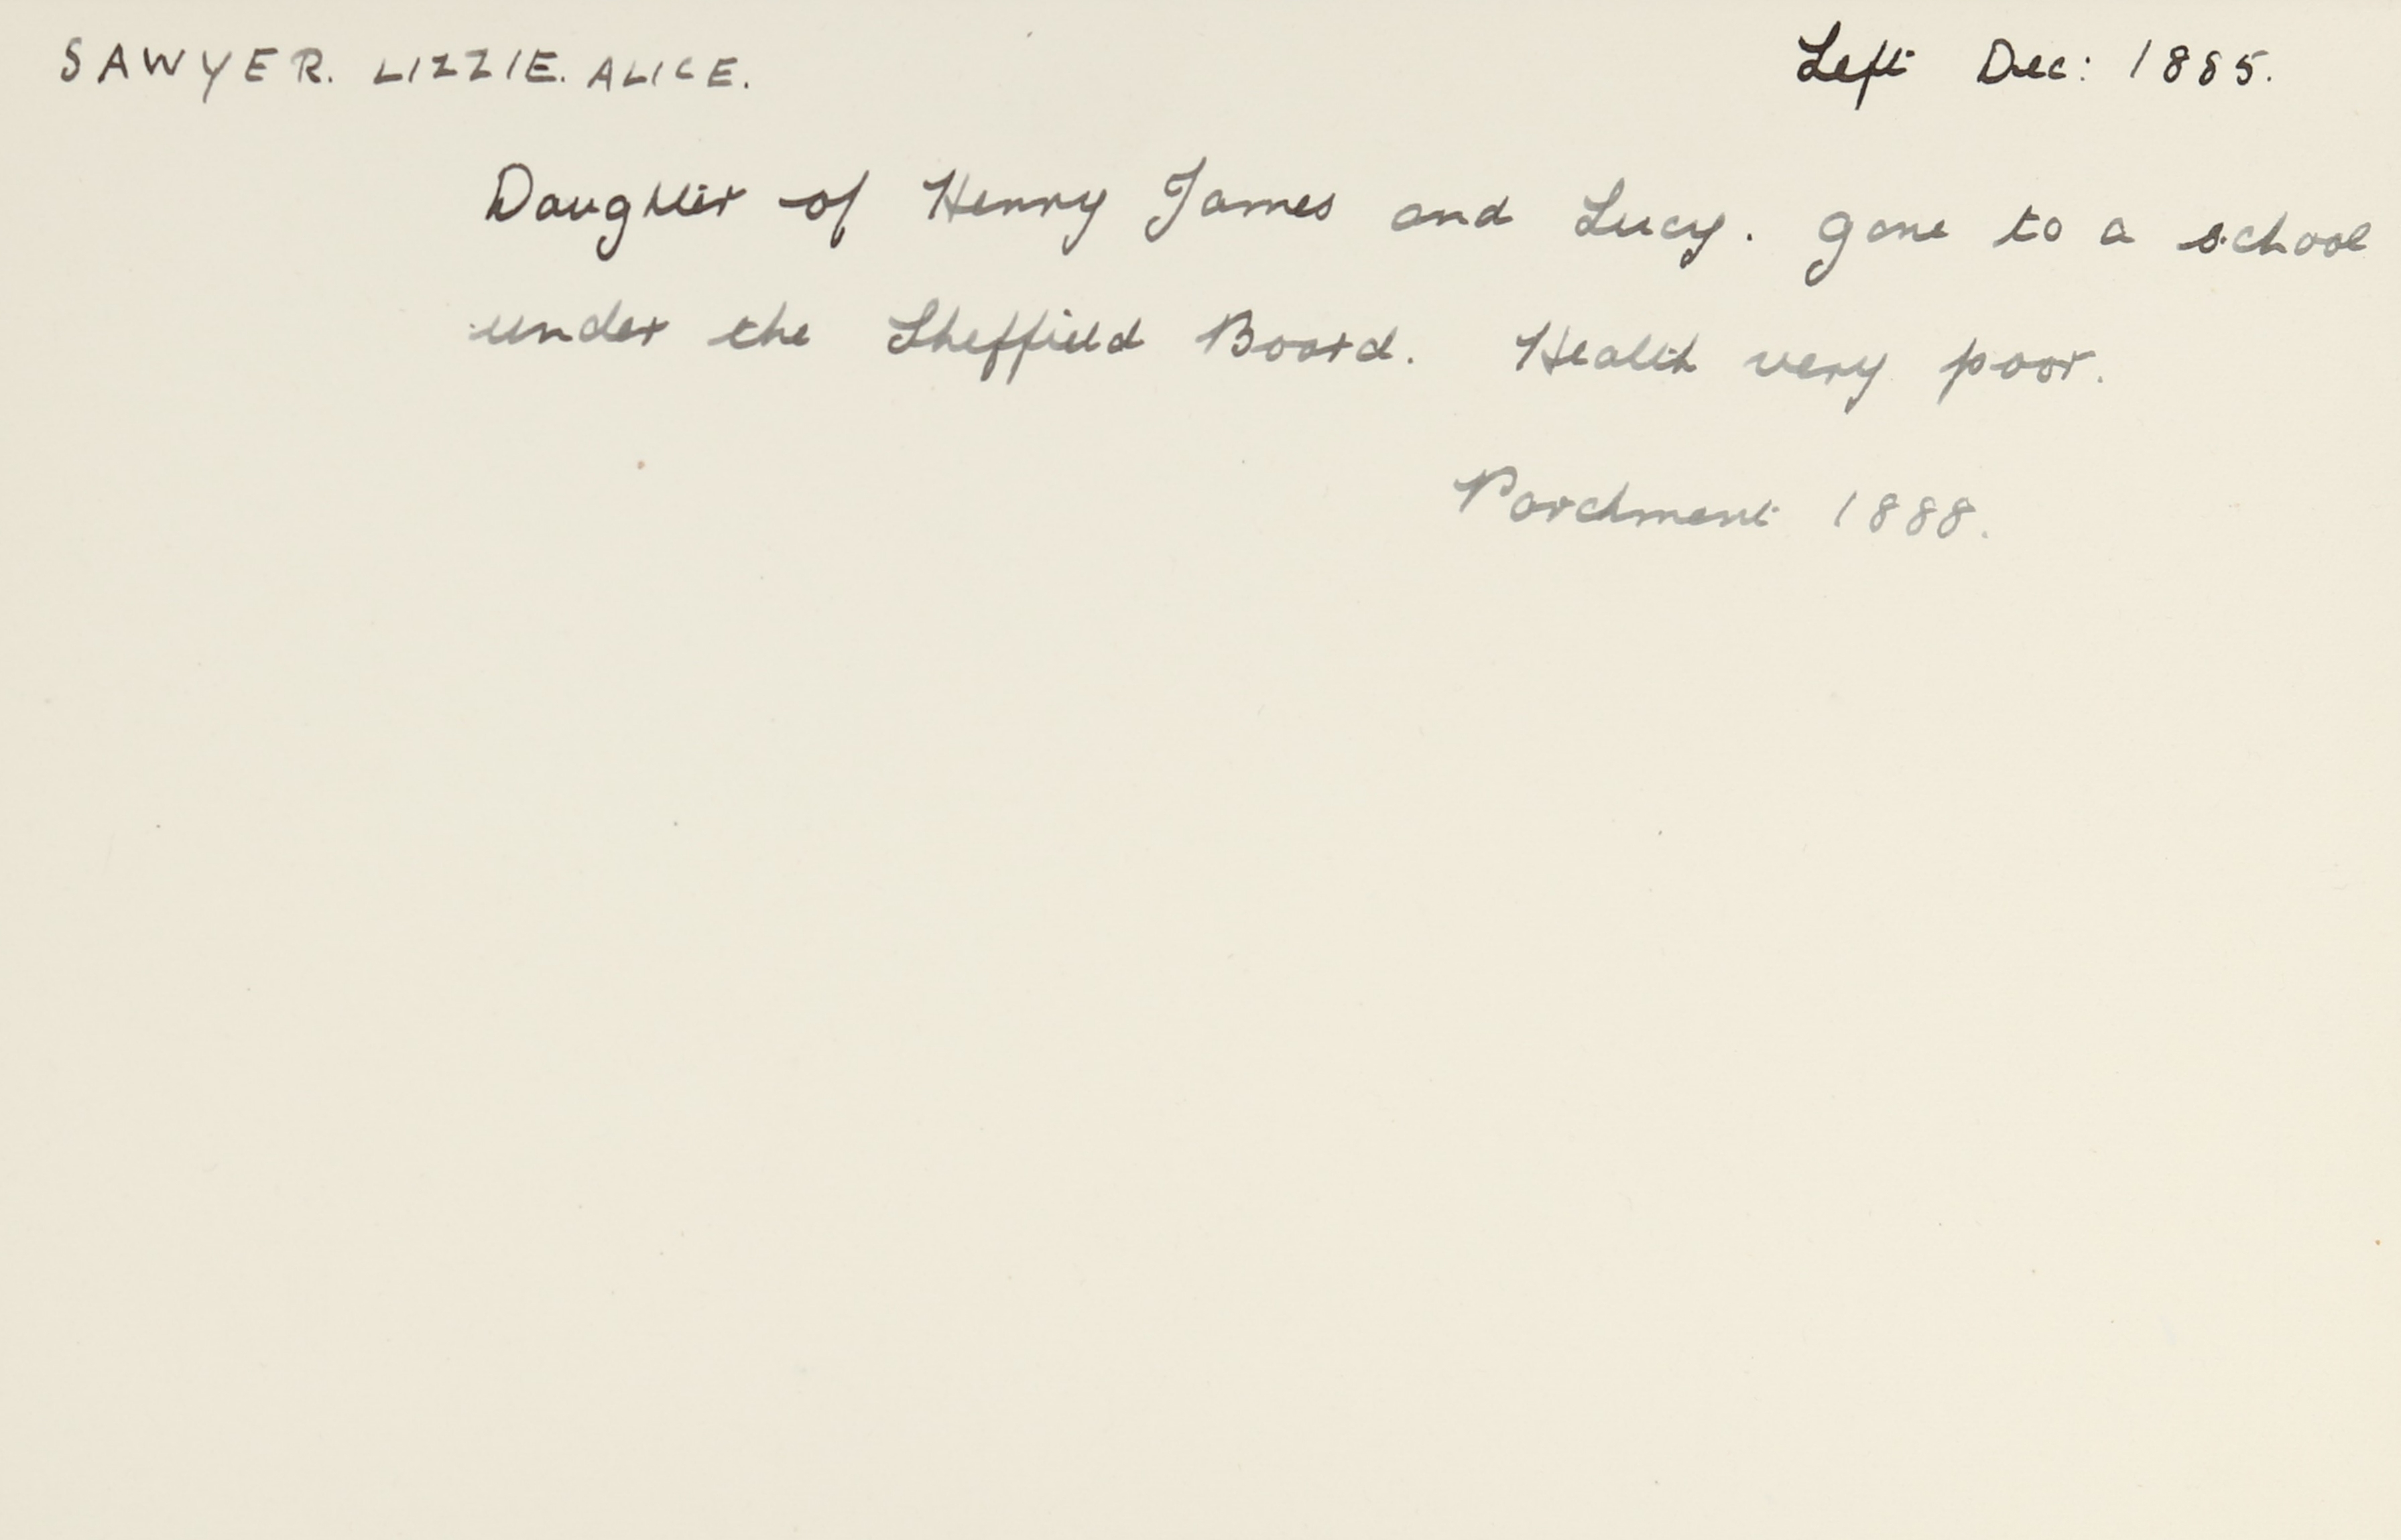 SAWYER. LIZZIE. ALICE. Left Dec: 1885.
Daughter of Henry James and Lucy. Gone to a school
under the Sheffield Board. Health very poor.
Parchment 1888.